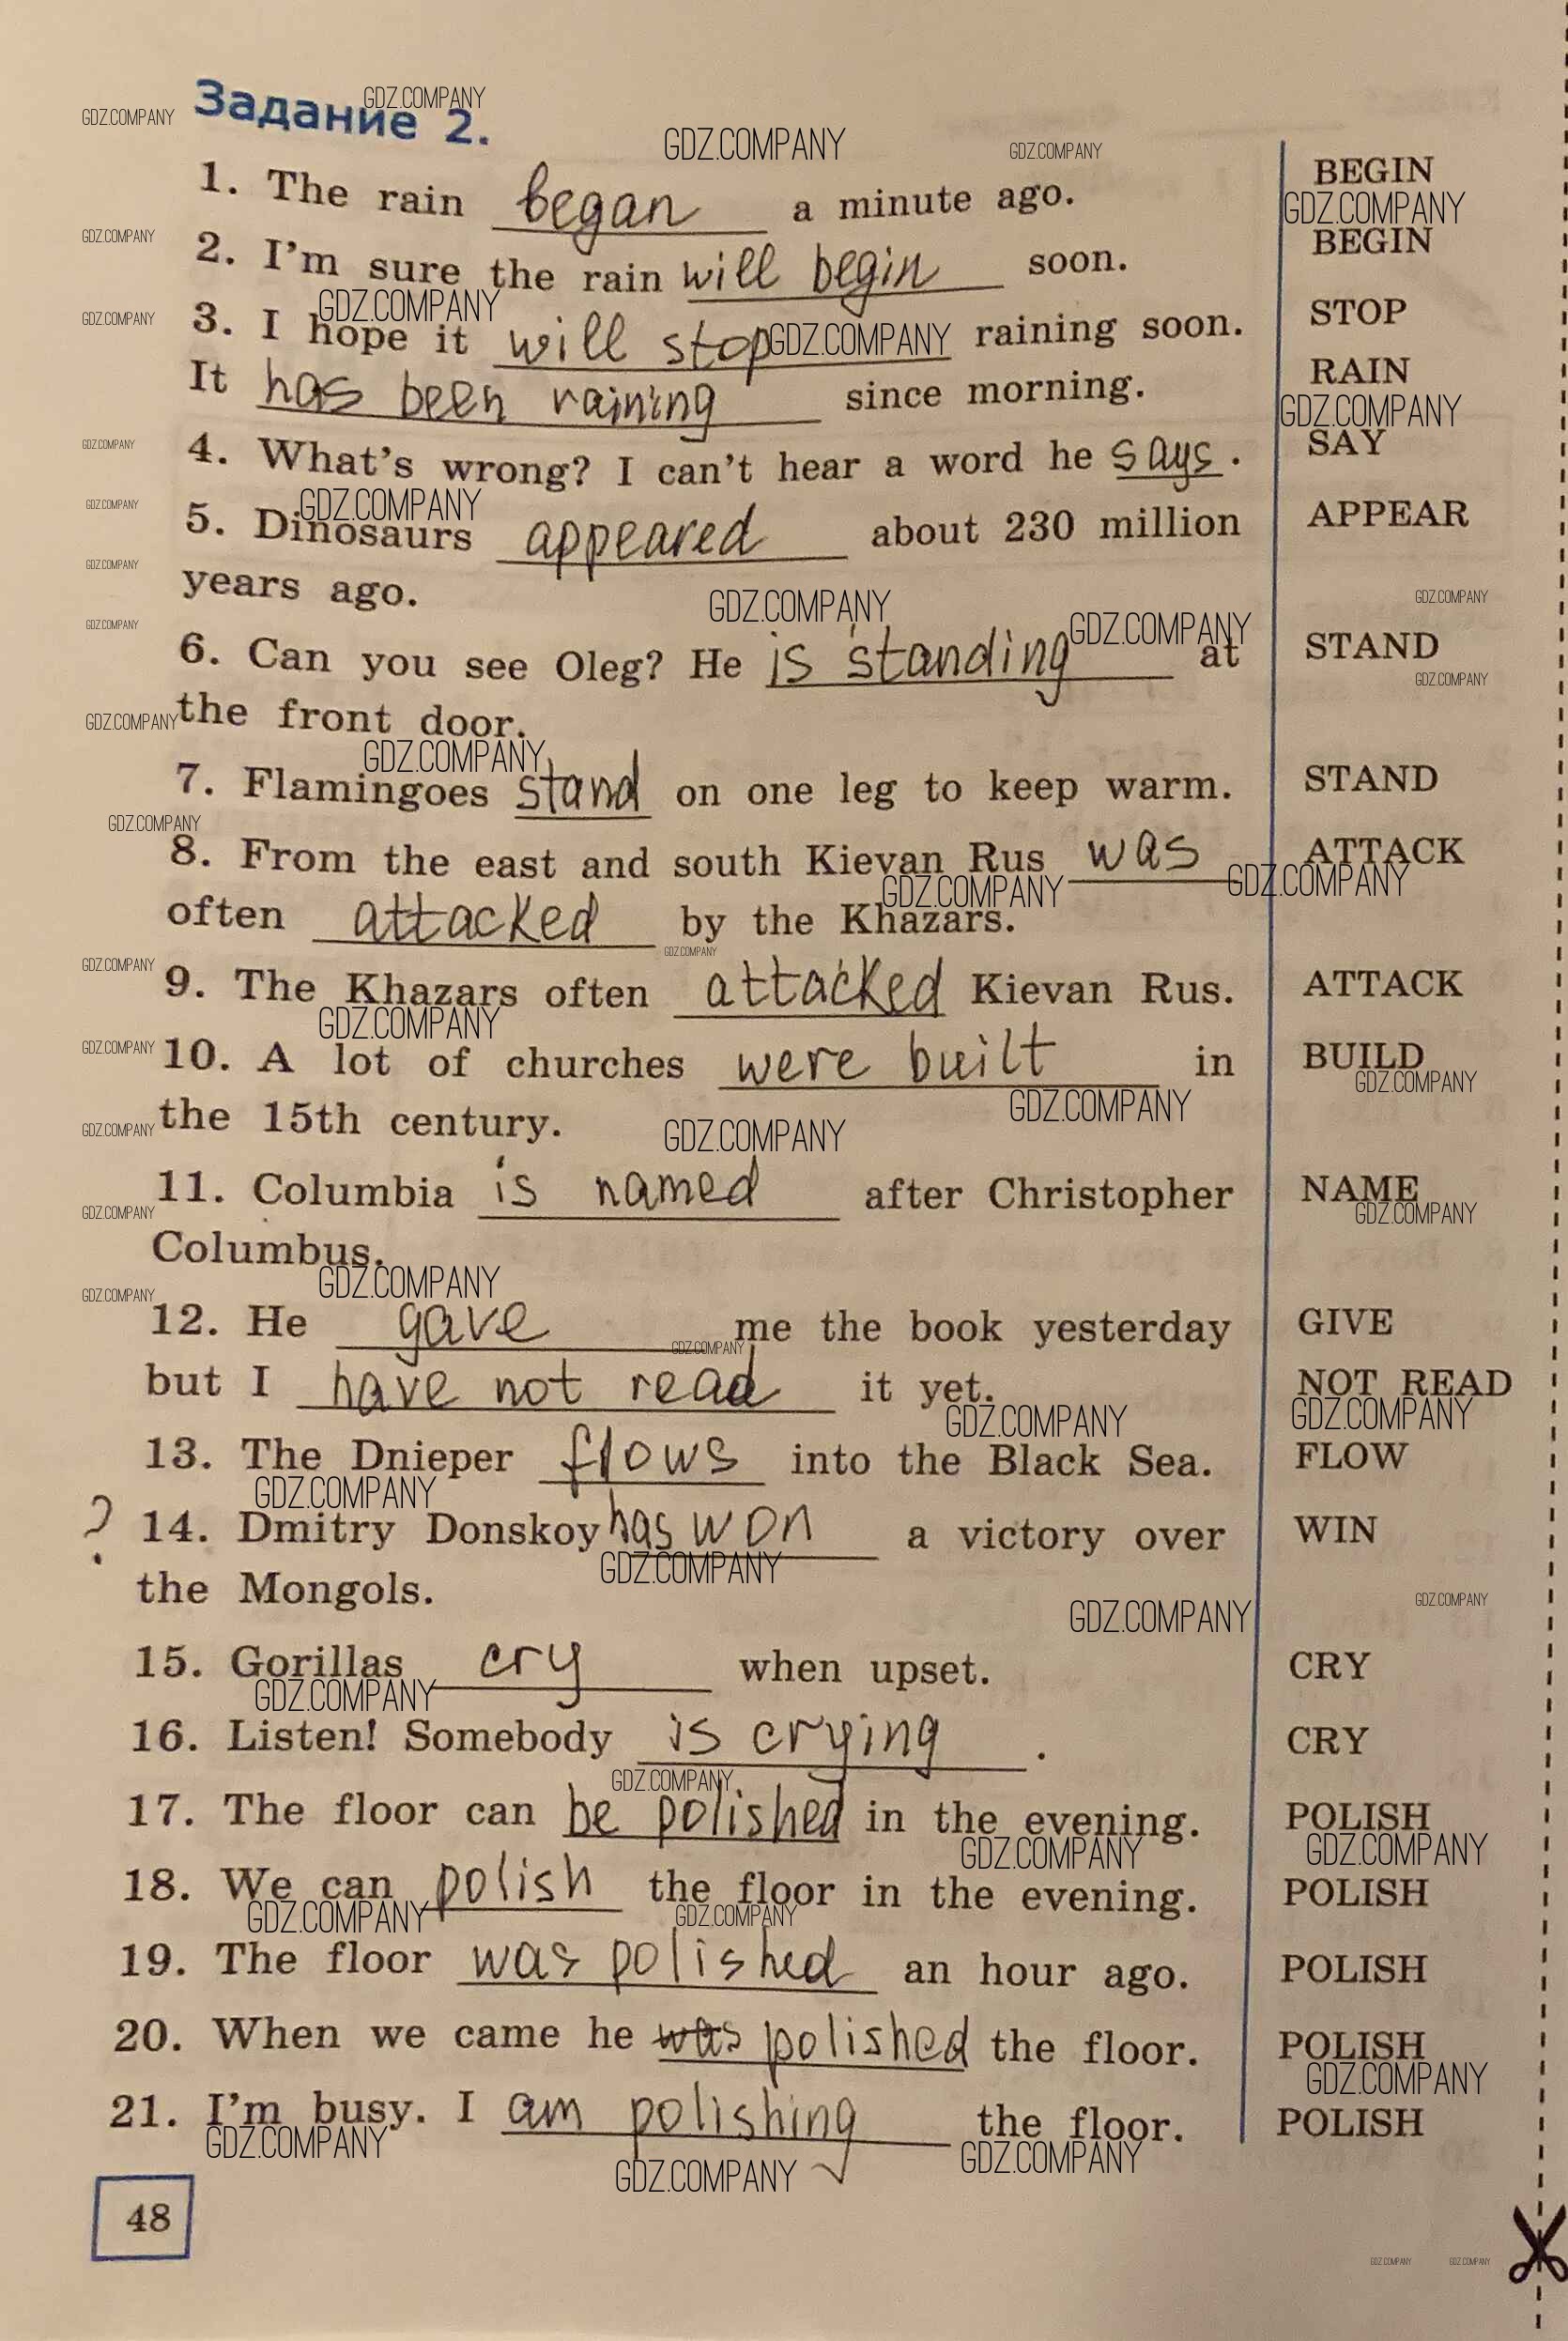 Задание 2.
1. The rain began a minute ago. BEGIN
2. I'm sure the rain will begin soon. BEGIN
3. I hope it will stop raining soon. STOP
It has been raining since morning. RAIN
4. What's wrong? I can't hear a word he says. SAY
5. Dinosaurs appeared about 230 million APPEAR
years ago.
6. Can you see Oleg? He is standing at STAND
the front door.
7. Flamingoes stand on one leg to keep warm. STAND
8. From the east and south Kievan Rus was ATTACK
often attacked by the Khazars.
9. The Khazars often attacked Kievan Rus. ATTACK
10. A lot of churches were built in BUILD
the 15th century.
11. Columbia is named after Christopher NAME
Columbus.
12. He gave me the book yesterday GIVE
but I have not read it yet. NOT READ
13. The Dnieper flows into the Black Sea. FLOW
? 14. Dmitry Donskoy has won a victory over WIN
the Mongols.
15. Gorillas cry when upset. CRY
16. Listen! Somebody is crying. CRY
17. The floor can be polished in the evening. POLISH
18. We can polish the floor in the evening. POLISH
19. The floor was polished an hour ago. POLISH
20. When we came he was polished the floor. POLISH
21. I'm busy. I am polishing the floor. POLISH
48
GDZ.COMPANY